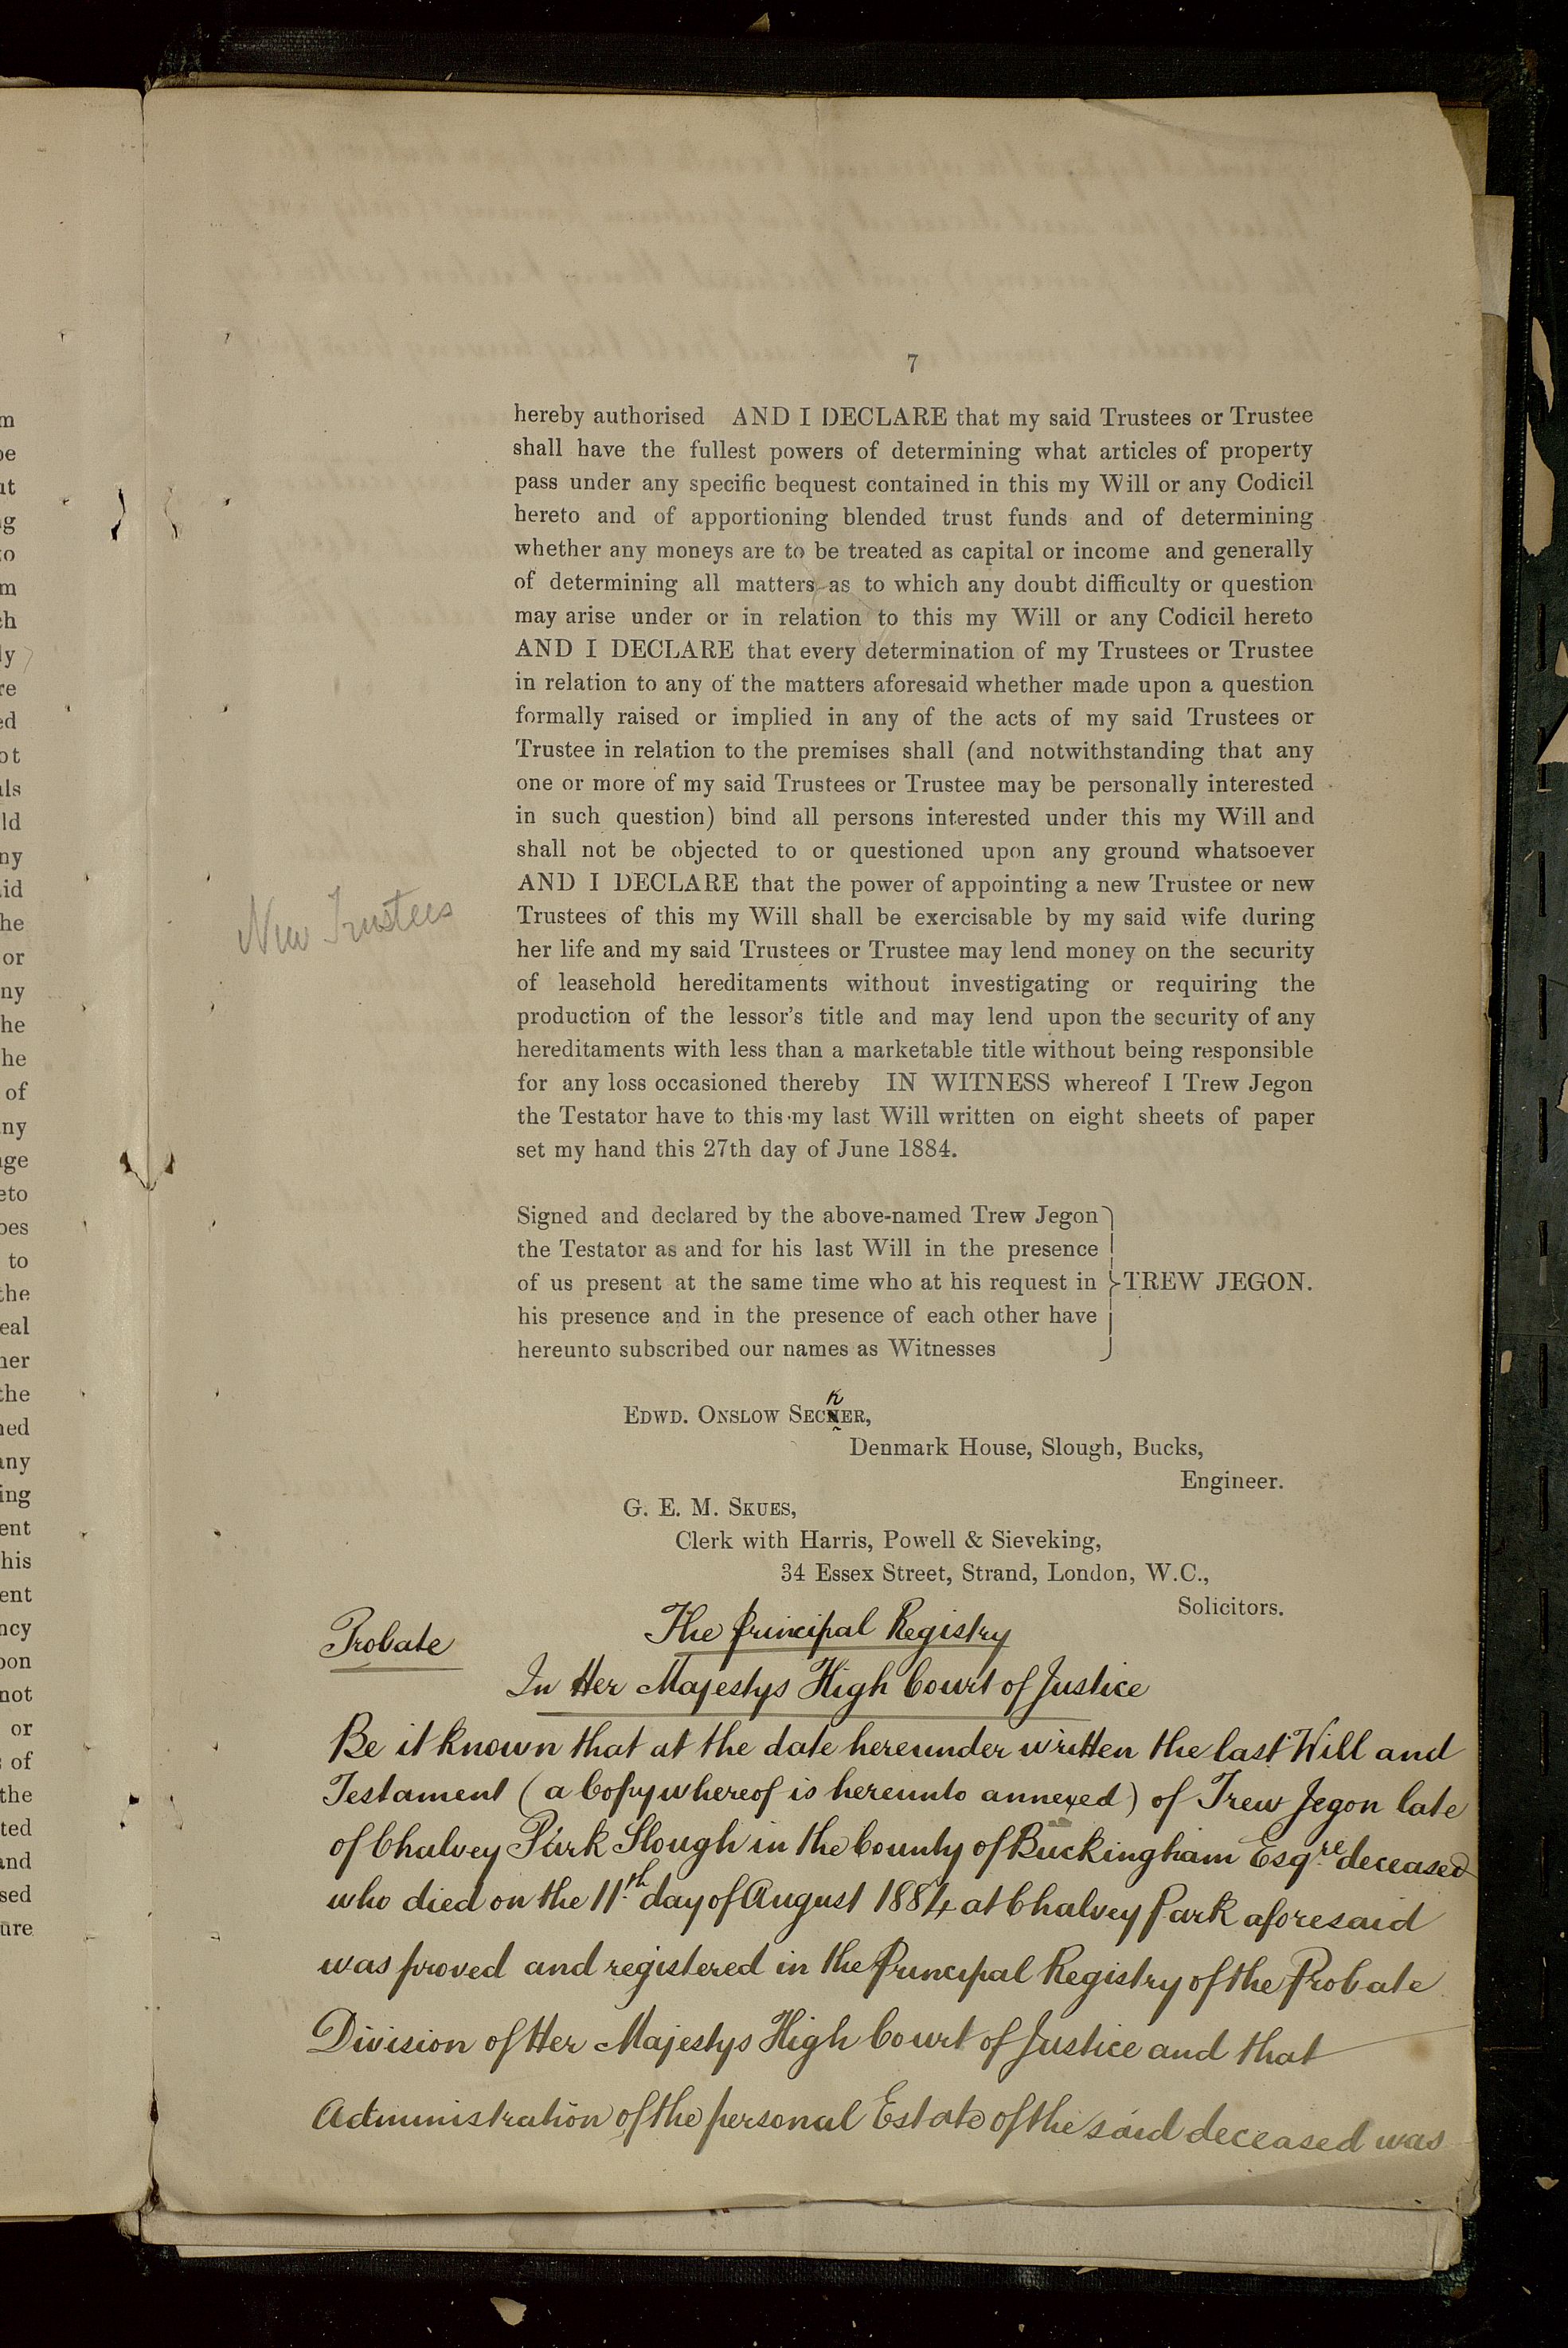 7
hereby authorised AND I DECLARE that my said Trustees or Trustee
shall have the fullest powers of determining what articles of property
pass under any specific bequest contained in this my Will or any Codicil
hereto and of apportioning blended trust funds and of determining
whether any moneys are to be treated as capital or income and generally
of determining all matters as to which any doubt difficulty or question
may arise under or in relation to this my Will or any Codicil hereto
AND I DECLARE that every determination of my Trustees or Trustee
in relation to any of the matters aforesaid whether made upon a question
formally raised or implied in any of the acts of my said Trustees or
Trustee in relation to the premises shall (and notwithstanding that any
one or more of my said Trustees or Trustee may be personally interested
in such question) bind all persons interested under this my Will and
shall not be objected to or questioned upon any ground whatsoever
AND I DECLARE that the power of appointing a new Trustee or new
New Trustees
Trustees of this my Will shall be exercisable by my said wife during
her life and my said Trustees or Trustee may lend money on the security
of leasehold hereditaments without investigating or requiring the
production of the lessor's title and may lend upon the security of any
hereditaments with less than a marketable title without being responsible
for any loss occasioned thereby IN WITNESS whereof I Trew Jegon
the Testator have to this my last Will written on eight sheets of paper
set my hand this 27th day of June 1884.
Signed and declared by the above-named Trew Jegon
the Testator as and for his last Will in the presence
of us present at the same time who at his request in TREW JEGON.
his presence and in the presence of each other have
hereunto subscribed our names as Witnesses
EDWD. ONSLOW SECKER,
Denmark House, Slough, Bucks,
Engineer.
G. E. M. SKUES,
Clerk with Harris, Powell & Sieveking,
34 Essex Street, Strand, London, W.C.,
Solicitors.
Probate The Principal Registry
In Her Majestys High Court of Justice
Be it known that at the date hereunder written the last Will and
Testament (a Copy whereof is hereunto annexed) of Trew Jegon late
of Chalvey Park Slough in the County of Buckingham Esqre deceased
who died on the 11th day of August 1884 at Chalvey Park aforesaid
was proved and registered in the Principal Registry of the Probate
Division of Her Majestys High Court of Justice and that
Administration of the personal Estate of the said deceased was